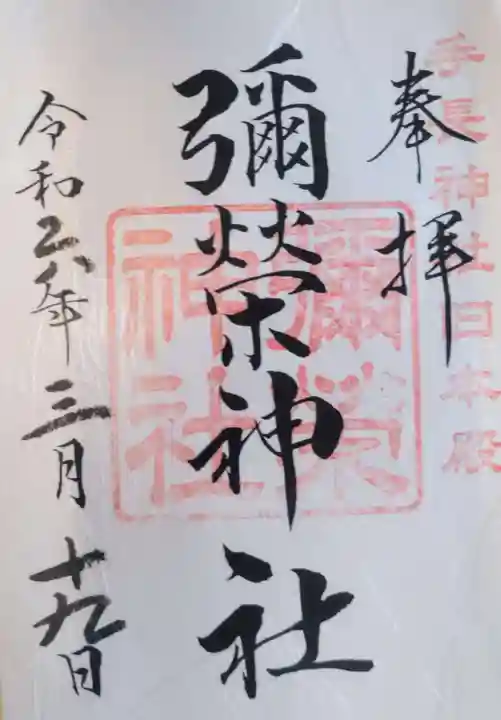 手長神社日本殿
奉拝
彌榮神社
彌榮神社
令和六年三月十九日